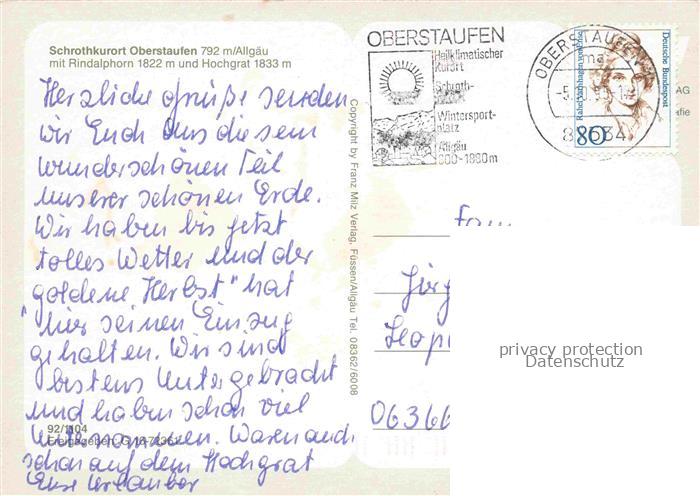 Schrothkurort Oberstaufen 792 m/Allgäu
mit Rindalphorn 1822 m und Hochgrat 1833 m
Herzliche Grüße senden
wir Euch aus diesem
wunderschönen Teil
unserer schönen Erde.
Wir haben bis jetzt
tolles Wetter und der
"goldene Herbst" hat
hier seinen Einzug
gehalten. Wir sind
bestens untergebracht
und haben schon viel
unternommen. Waren auch
schon auf dem Hochgrat
Eure Urlauber
92/1104
Freigegeben:
Copyright by Franz Milz Verlag, Füssen/Allgäu Tel. 08362/6008
OBERSTAUFEN
Heilklimatischer
Kurort
Schroth-
Wintersport-
platz
Allgäu
800-1880m
OBERSTAUFEN
Deutsche Bundespost
80
Fam
Jürg
Leop
06366
AG
privacy protection
Datenschutz